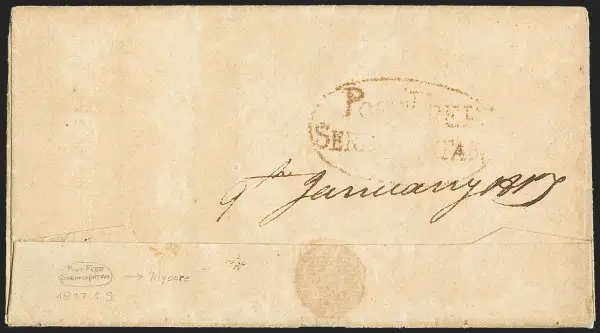 POST FREE
SERINGAPATAM
9th January 1817
POST FREE
SERINGAPATAM → Mysore
1817.1.9